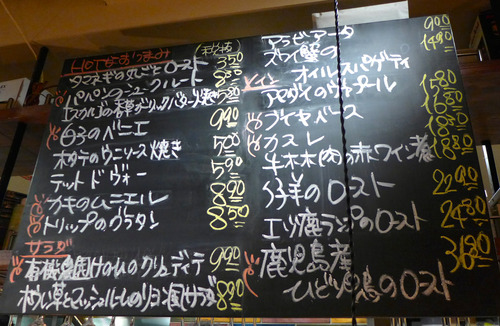 HOTなおつまみ (税抜)
タマネギの丸ごとロースト 350
パパンのシュークルート 880
エスカルゴの香草ガーリックバター焼き 580
白子のベニエ 990
ホタテのウニソース焼き 580
テット ド ヴォー 590
カキのムニエル 890
トリップのグラタン 850
サラダ
有機 990
ほうれん草とマッシュルームのリヨン風サラダ 890
アラビアータ 990
ズワイ蟹の
オイルスパゲティ 1490
メイン
アサリのヴァプール 1580
ブイヤベース 1680
カスレ 1880
牛ホホ肉の赤ワイン煮 1880
仔羊のロースト 2290
エゾ鹿ランプのロースト 2480
鹿児島産
ひとり鳥のロースト 3680